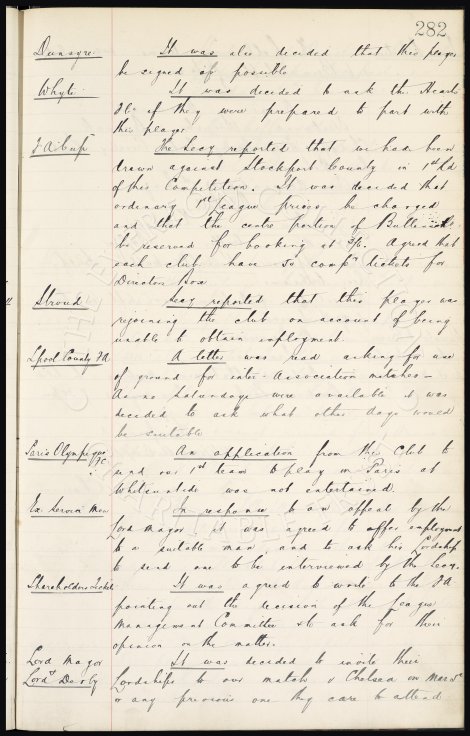 282
Dunsyre. It was also decided that this player
be signed if possible
Whyte. It was decided to ask the Hearts
if they were prepared to part with
this player
F A Cup The Secy reported that we had been
drawn against Stockport County in 1st Rd
of this Competition. It was decided that
ordinary 1st League prices be charged
and that the centre portion of
be reserved for booking at 3/-. Agreed that
each club have 50 comp tickets for
Directors Box
Stroud Secy reported that this player was
rejoining the club on account of being
unable to obtain employment
Lpool County F A A letter was read asking for use
of ground for inter-Association matches -
As no Saturdays were available it was
decided to ask what other days would
be suitable
Paris Olympique FC An application from this Club to
send our 1st team to play in Paris at
Whitsuntide was not entertained.
Ex. Service Men In response to an appeal by the
Lord Mayor it was agreed to offer employment
to a suitable man, and to ask his Lordship
to send one to be interviewed by the Secy.
Shareholders Ticket It was agreed to write to the F A
pointing out the decision of the League
Management Committee & to ask for their
opinion on the matter.
Lord Mayor It was decided to invite their
Lord Derby Lordships to our match v Chelsea on Mar
or any previous one they care to attend